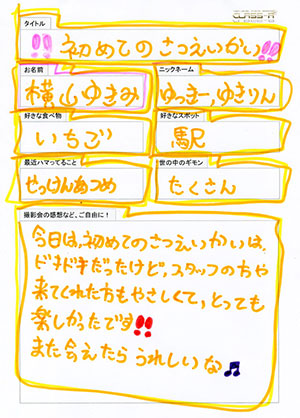 CLASS-A
タイトル
!! 初めてのさつえいかい!!
お名前
横山ゆきみ
ニックネーム
ゆっきー,ゆきりん
好きな食べ物
いちご
好きなスポット
駅
最近ハマってること
せっけんあつめ
世の中のギモン
たくさん
撮影会の感想など、ご自由に!
今日は,初めてのさつえいかいは,
ドキドキだったけど,スタッフの方や
来てくれた方もやさしくて,とっても
楽しかったです!!
また会えたらうれしいな♪